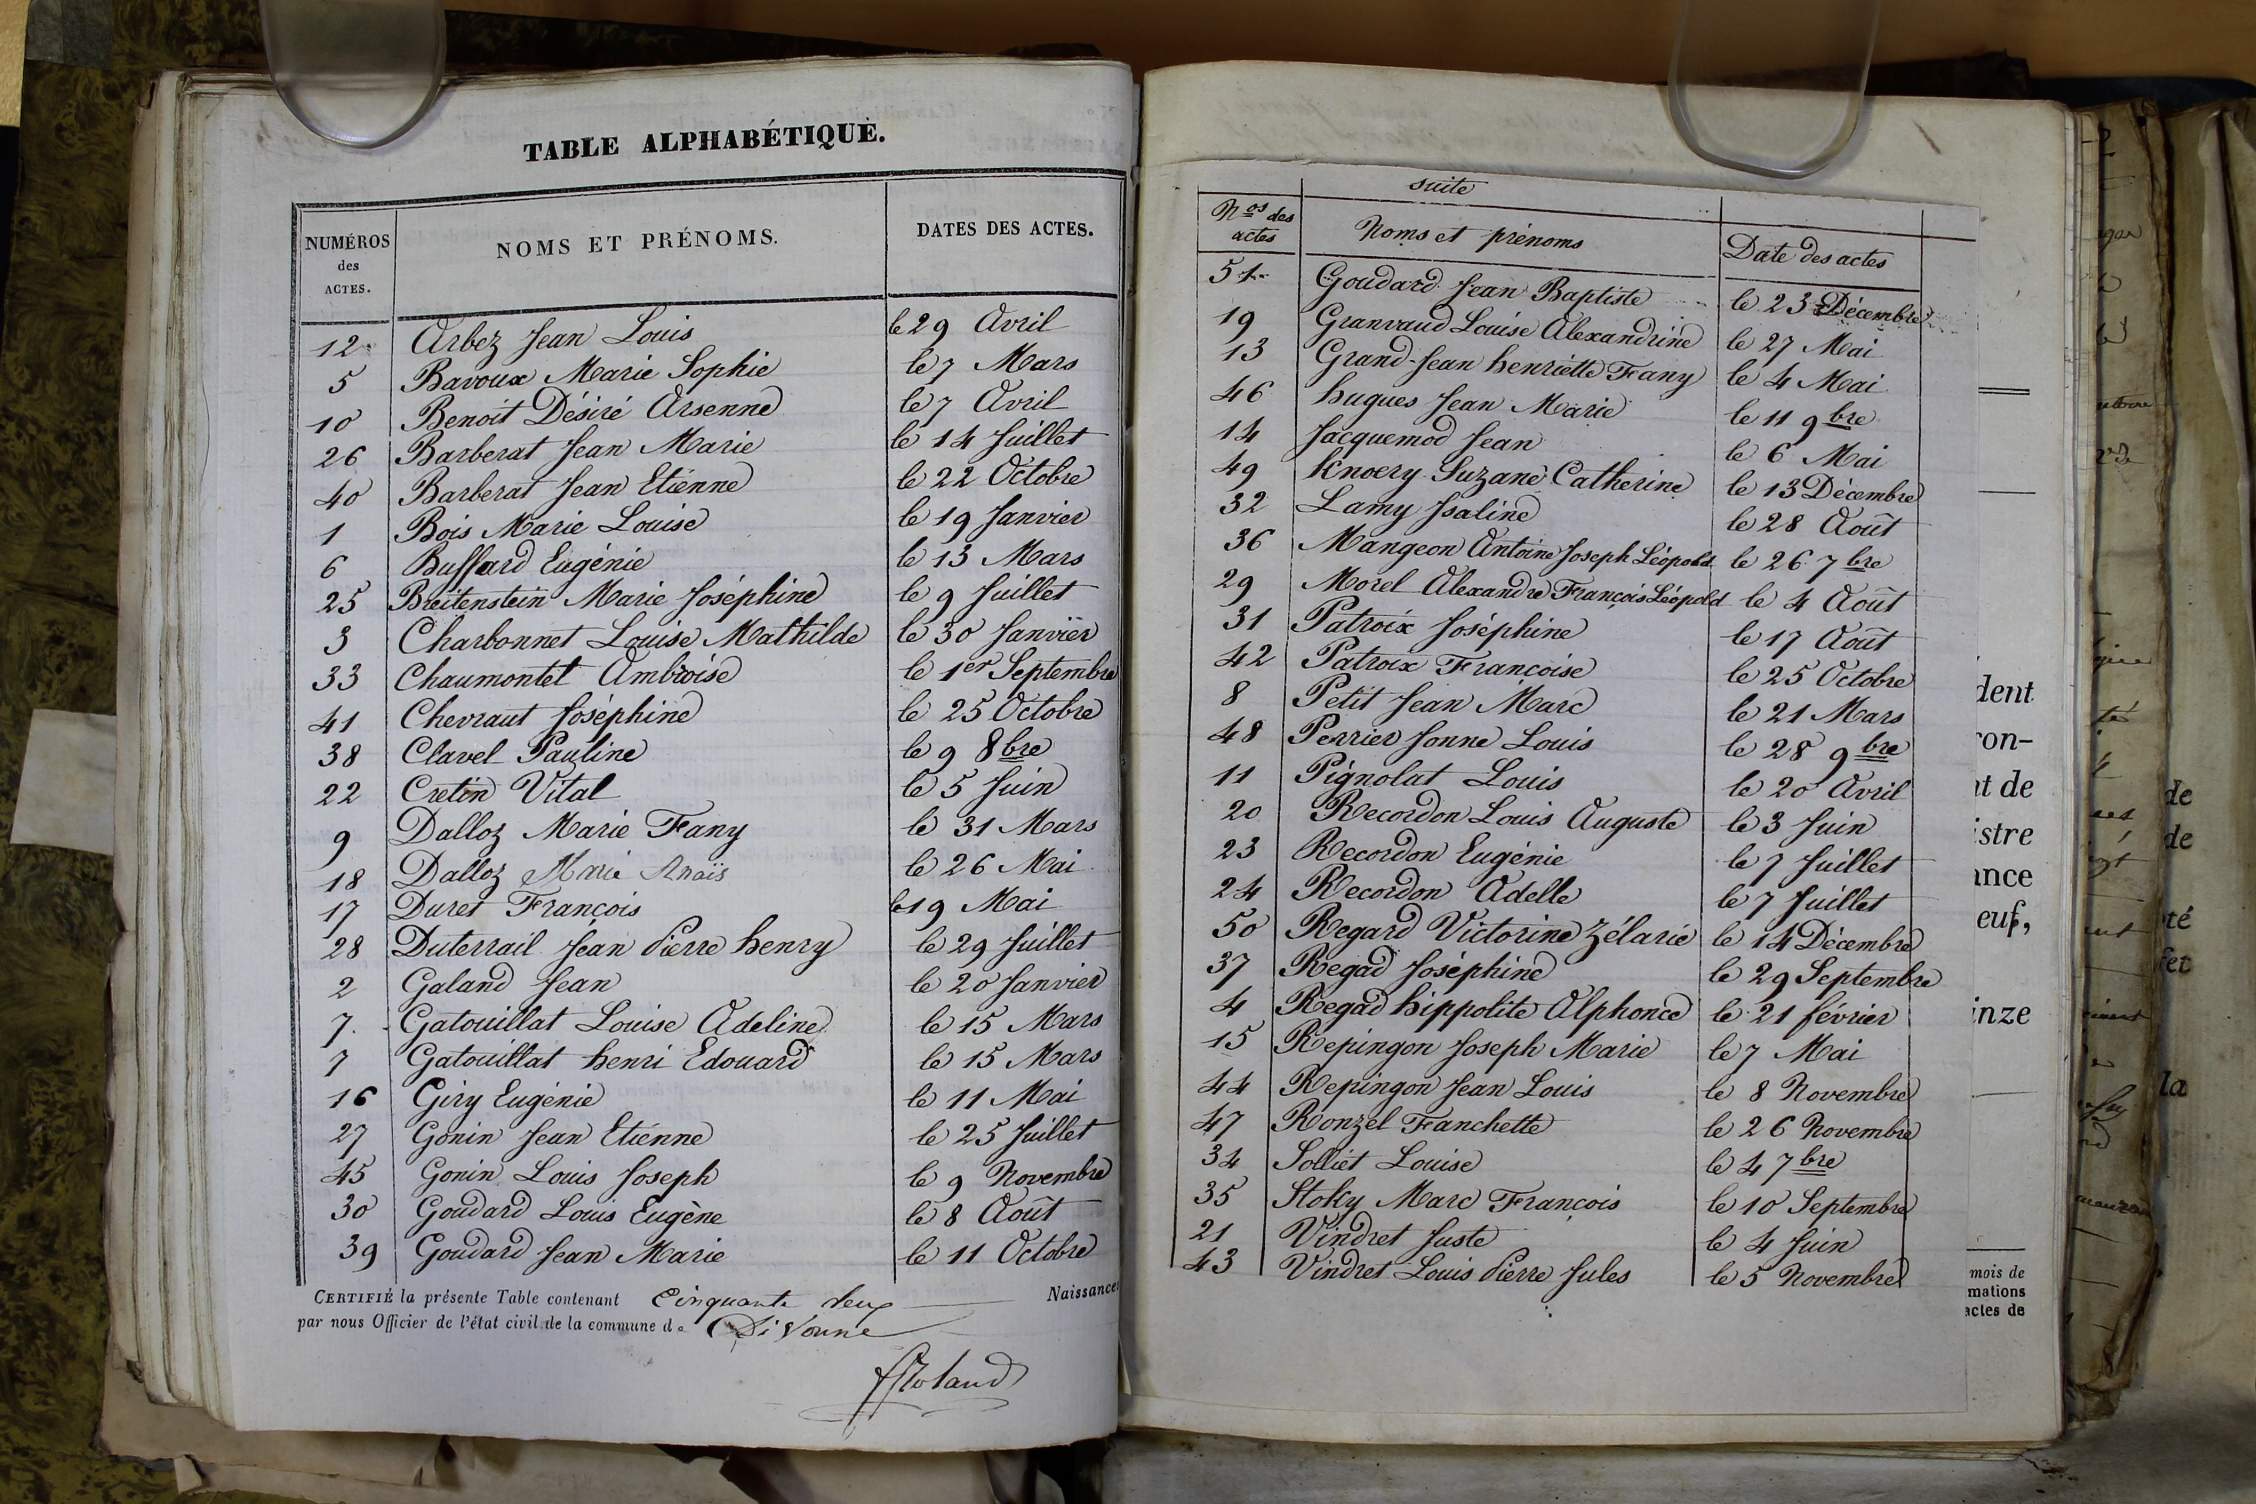 TABLE ALPHABÉTIQUE.
NUMÉROS des ACTES. NOMS ET PRÉNOMS. DATES DES ACTES.
12 Arbez Jean Louis le 29 Avril
5 Bavoux Marie Sophie le 7 Mars
10 Benoit Désiré Arsenne le 7 Avril
26 Barberat Jean Marie le 14 Juillet
40 Barberat Jean Etienne le 22 Octobre
1 Bois Marie Louise le 19 Janvier
6 Buffard Eugénie le 13 Mars
25 Breitenstein Marie Joséphine le 9 Juillet
3 Charbonnet Louise Mathilde le 30 Janvier
33 Chaumontet Ambroise le 1er Septembre
41 Chevraut Joséphine le 25 Octobre
38 Clavel Pauline le 9 8bre
22 Cretin Vital le 5 Juin
9 Dalloz Marie Fany le 31 Mars
18 Dalloz Marie Anaïs le 26 Mai
17 Duret François le 19 Mai
28 Duterrail Jean Pierre henry le 29 Juillet
2 Galand Jean le 20 Janvier
7. Gatouillat Louise Adeline le 15 Mars
7 Gatouillat henri Edouard le 15 Mars
16 Giry Eugénie le 11 Mai
27 Gonin Jean Etienne le 25 Juillet
45 Gonin Louis Joseph le 9 Novembre
30 Goudard Louis Eugène le 8 Août
39 Goudard Jean Marie le 11 Octobre
CERTIFIÉ la présente Table contenant Cinquante deux Naissances
par nous Officier de l'état civil de la commune de Divonne
Roland
suite
Nos des actes Noms et prénoms Date des actes
51 Goudard Jean Baptiste le 23 Décembre
19 Granvaud Louise Alexandrine le 27 Mai
13 Grand-Jean henriette Fany le 4 Mai
46 hugues Jean Marie le 11 9bre
14 Jacquemod Jean le 6 Mai
49 Knoery Suzane Catherine le 13 Décembre
32 Lamy Isaline le 28 Août
36 Mangeon Antoine Joseph Léopold le 26 7bre
29 Morel Alexandre François Léopold le 4 Août
31 Patroix Joséphine le 17 Août
42 Patroix Françoise le 25 Octobre
8 Petit Jean Marc le 21 Mars
48 Perrier Jonne Louis le 28 9bre
11 Pignolat Louis le 20 Avril
20 Recordon Louis Auguste le 3 Juin
23 Recordon Eugénie le 7 Juillet
24 Recordon Adelle le 7 Juillet
50 Regard Victorine Zélarie le 14 Décembre
37 Regad Joséphine le 29 Septembre
4 Regad hippolite Alphonce le 21 février
15 Repingon Joseph Marie le 7 Mai
44 Repingon Jean Louis le 8 Novembre
47 Ronzel Fanchette le 26 Novembre
34 Solliet Louise le 4 7bre
35 Stoky Marc François le 10 Septembre
21 Vindret Juste le 4 Juin
43 Vindret Louis Pierre Jules le 5 Novembre
dent
ron-
nt de
istre
ance
euf,
inze
mois de
mations
actes de
de
de
té
fet
la